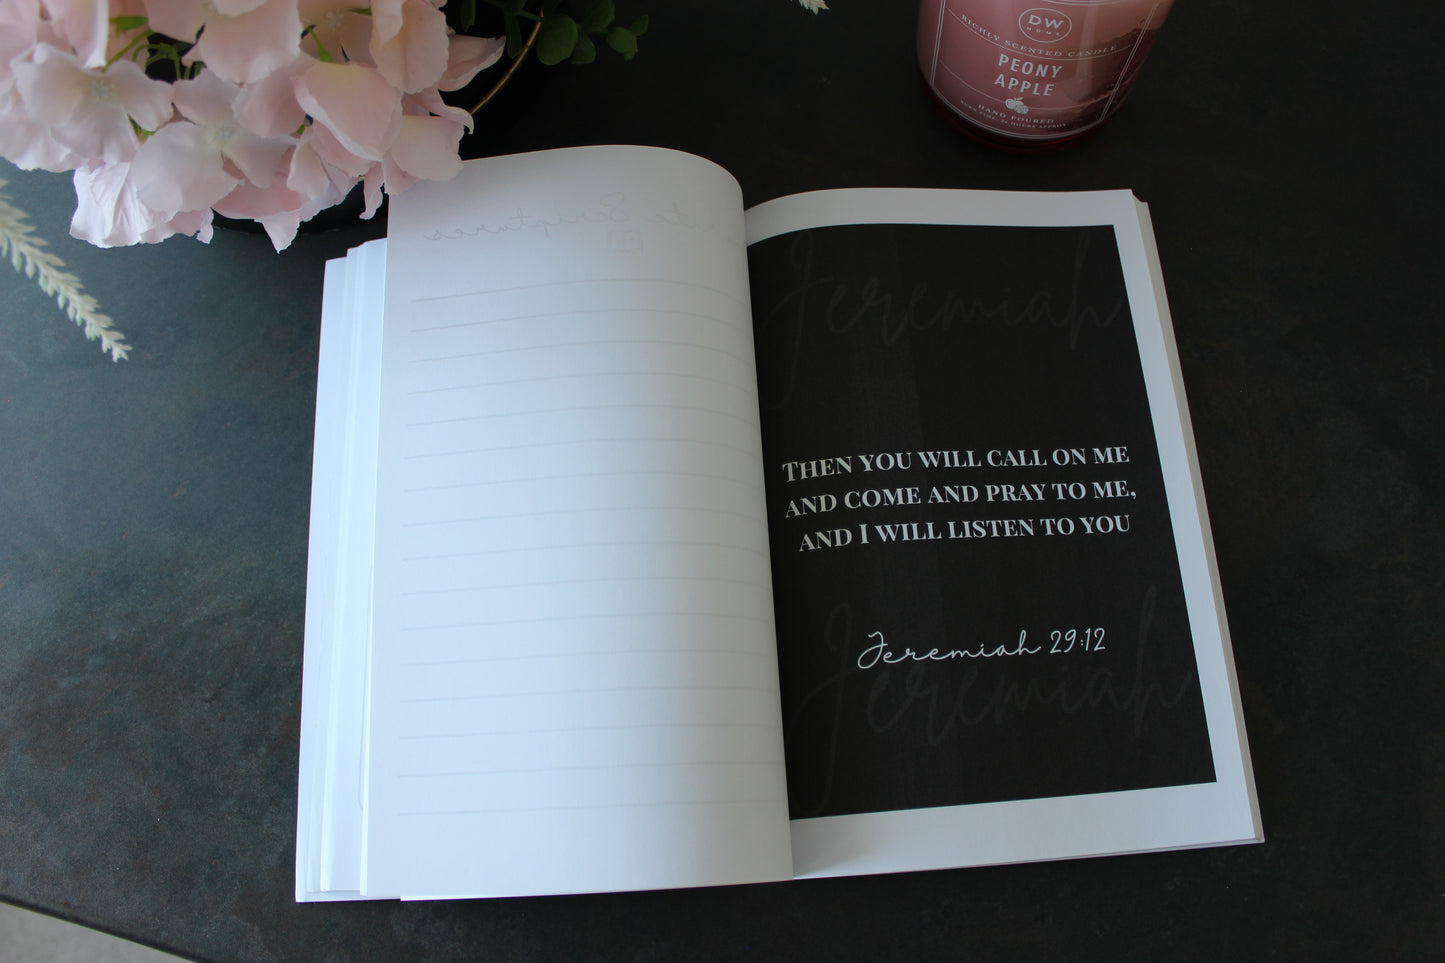 DW
HOME
RICHLY SCENTED CANDLE
PEONY
APPLE
HAND POURED
BURN TIME: 36 HOURS APPROX.
Scriptures
Jeremiah
THEN YOU WILL CALL ON ME
AND COME AND PRAY TO ME,
AND I WILL LISTEN TO YOU
Jeremiah 29:12
Jeremiah